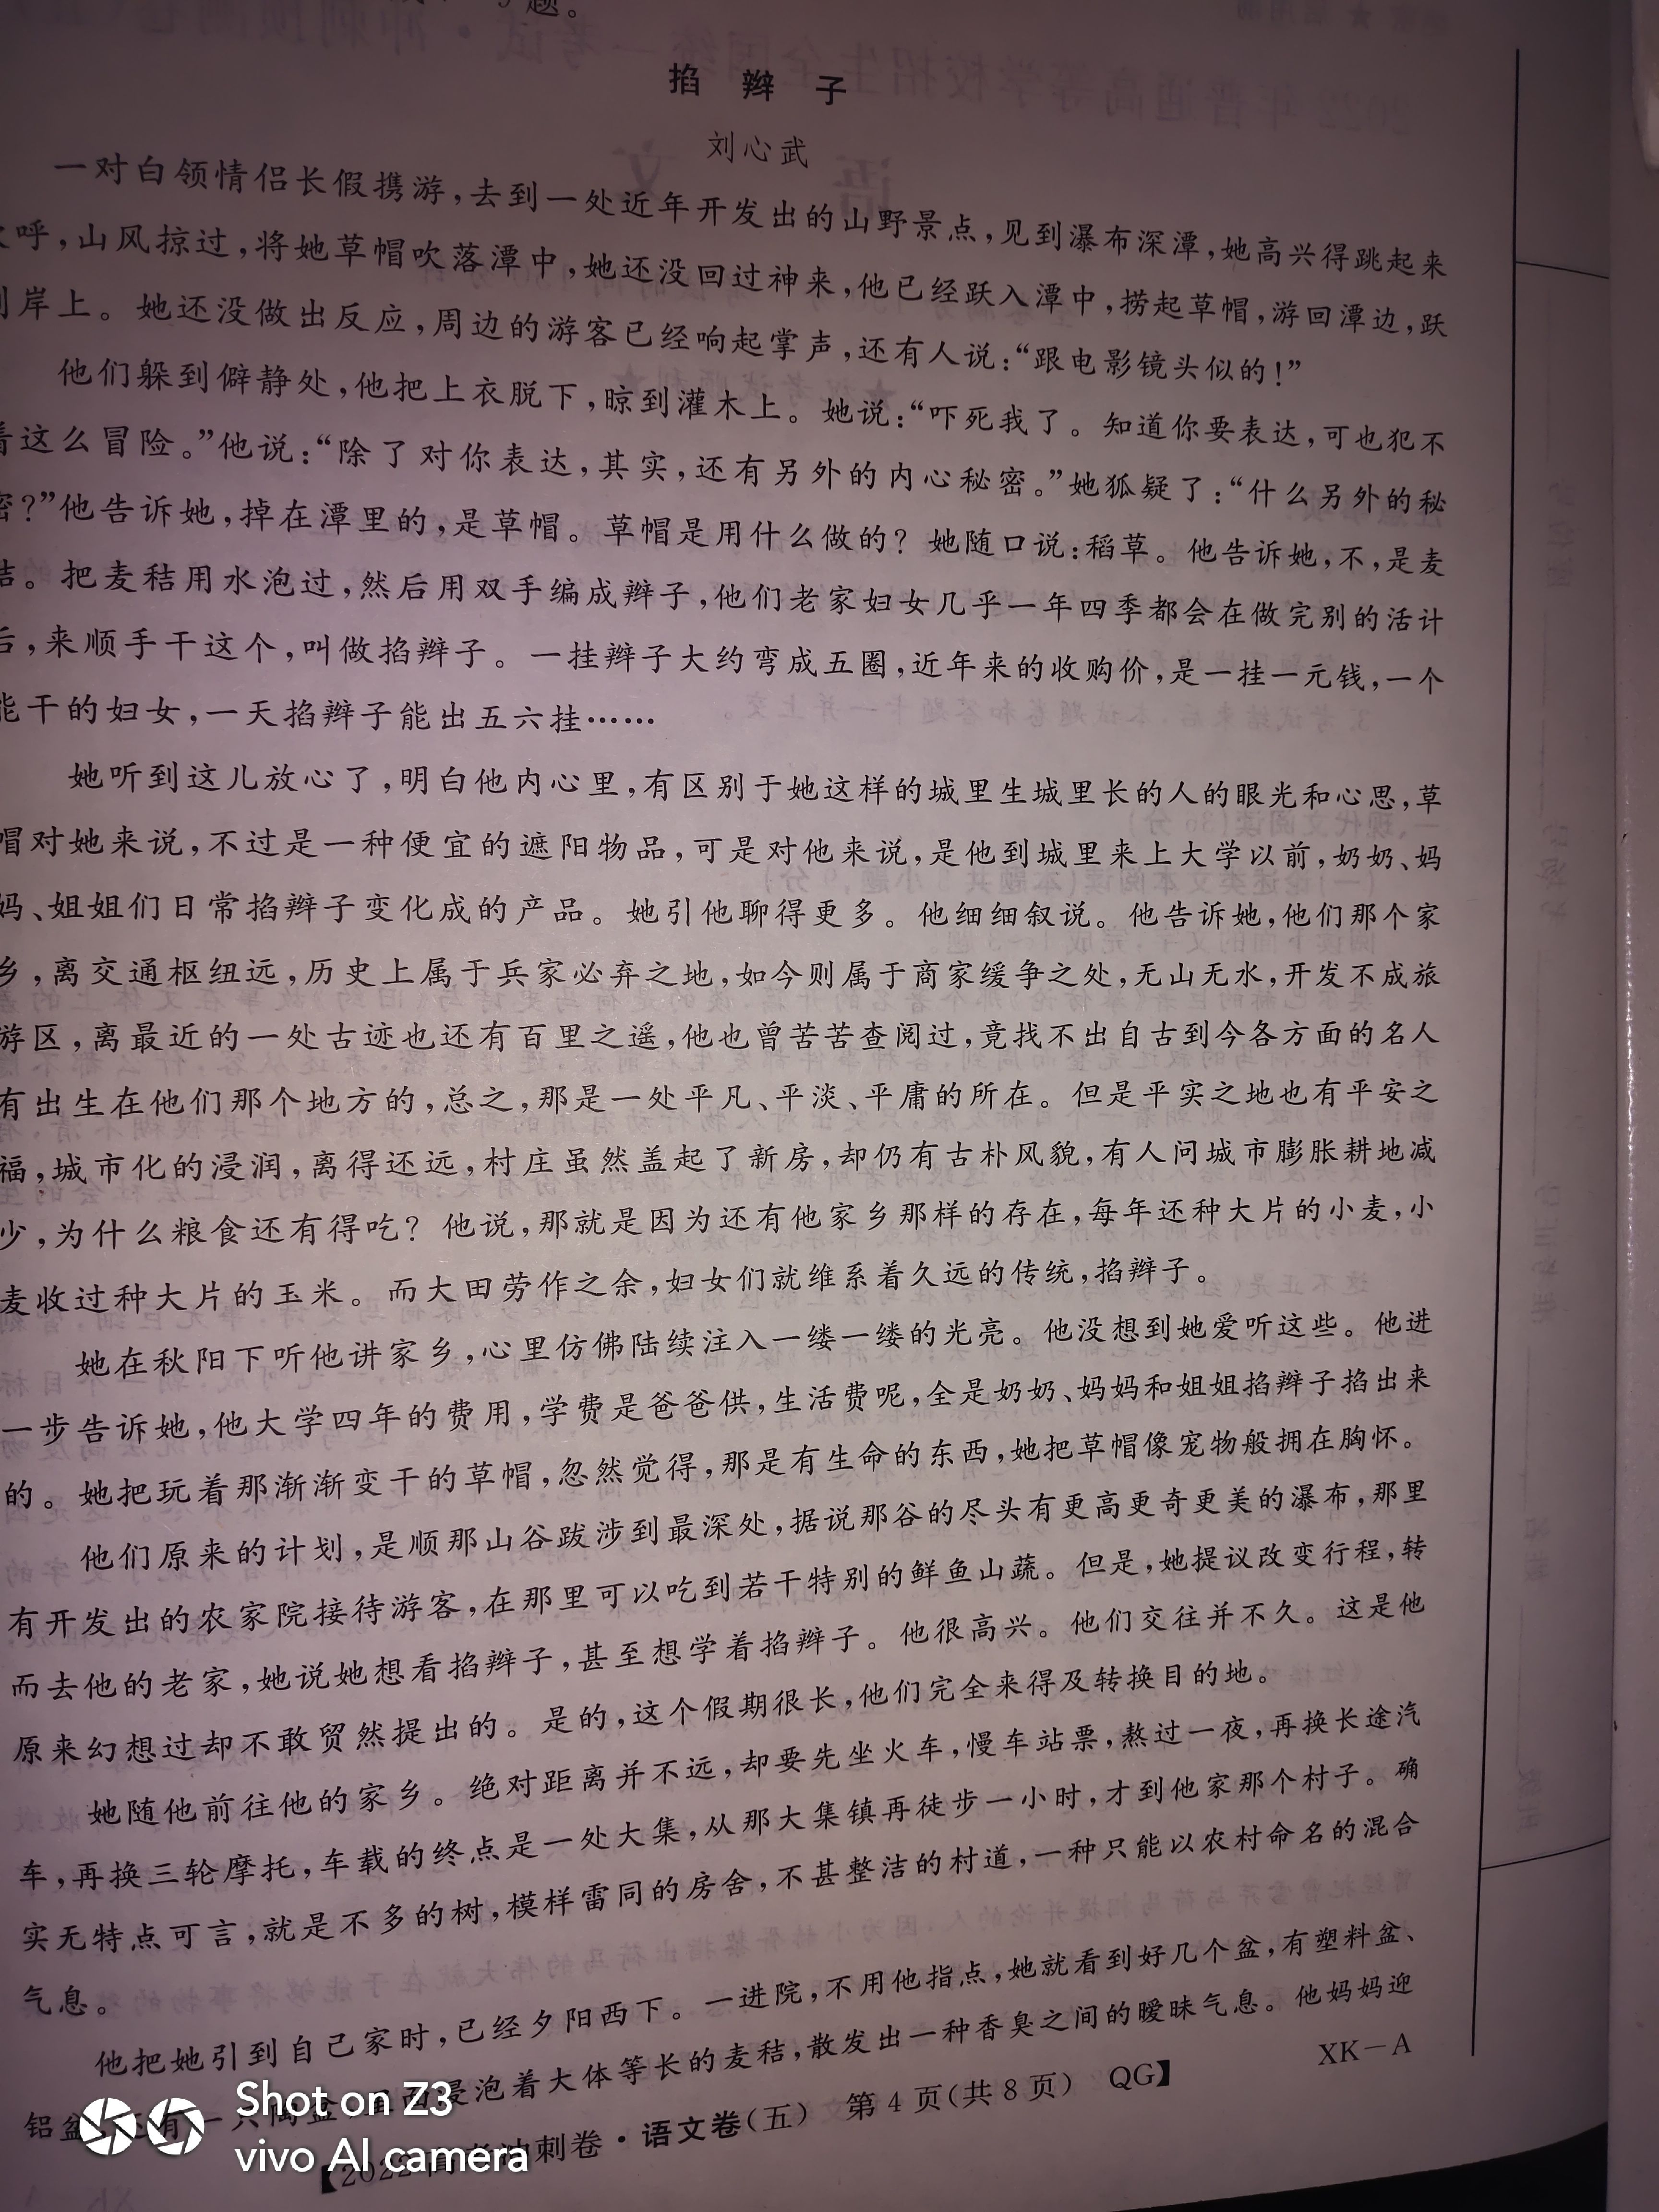 题。
掐辫子
刘心武
一对白领情侣长假携游,去到一处近年开发出的山野景点,见到瀑布深潭,她高兴得跳起来
呼,山风掠过,将她草帽吹落潭中,她还没回过神来,他已经跃入潭中,捞起草帽,游回潭边,跃
岸上。她还没做出反应,周边的游客已经响起掌声,还有人说:“跟电影镜头似的!”
他们躲到僻静处,他把上衣脱下,晾到灌木上。她说:“吓死我了。知道你要表达,可也犯不
着这么冒险。”他说:“除了对你表达,其实,还有另外的内心秘密。”她狐疑了:“什么另外的秘
密?”他告诉她,掉在潭里的,是草帽。草帽是用什么做的?她随口说:稻草。他告诉她,不,是麦
秸。把麦秸用水泡过,然后用双手编成辫子,他们老家妇女几乎一年四季都会在做完别的活计
后,来顺手干这个,叫做掐辫子。一挂辫子大约弯成五圈,近年来的收购价,是一挂一元钱,一个
能干的妇女,一天掐辫子能出五六挂……
她听到这儿放心了,明白他内心里,有区别于她这样的城里生城里长的人的眼光和心思,草
帽对她来说,不过是一种便宜的遮阳物品,可是对他来说,是他到城里来上大学以前,奶奶、妈
妈、姐姐们日常掐辫子变化成的产品。她引他聊得更多。他细细叙说。他告诉她,他们那个家
乡,离交通枢纽远,历史上属于兵家必弃之地,如今则属于商家缓争之处,无山无水,开发不成旅
游区,离最近的一处古迹也还有百里之遥,他也曾苦苦查阅过,竟找不出自古到今各方面的名人
有出生在他们那个地方的,总之,那是一处平凡、平淡、平庸的所在。但是平实之地也有平安之
福,城市化的浸润,离得还远,村庄虽然盖起了新房,却仍有古朴风貌,有人问城市膨胀耕地减
少,为什么粮食还有得吃?他说,那就是因为还有他家乡那样的存在,每年还种大片的小麦,小
麦收过种大片的玉米。而大田劳作之余,妇女们就维系着久远的传统,掐辫子。
她在秋阳下听他讲家乡,心里仿佛陆续注入一缕一缕的光亮。他没想到她爱听这些。他进
一步告诉她,他大学四年的费用,学费是爸爸供,生活费呢,全是奶奶、妈妈和姐姐掐辫子掐出来
的。她把玩着那渐渐变干的草帽,忽然觉得,那是有生命的东西,她把草帽像宠物般拥在胸怀。
他们原来的计划,是顺那山谷跋涉到最深处,据说那谷的尽头有更高更奇更美的瀑布,那里
有开发出的农家院接待游客,在那里可以吃到若干特别的鲜鱼山蔬。但是,她提议改变行程,转
而去他的老家,她说她想看掐辫子,甚至想学着掐辫子。他很高兴。他们交往并不久。这是他
原来幻想过却不敢贸然提出的。是的,这个假期很长,他们完全来得及转换目的地。
她随他前往他的家乡。绝对距离并不远,却要先坐火车,慢车站票,熬过一夜,再换长途汽
车,再换三轮摩托,车载的终点是一处大集,从那大集镇再徒步一小时,才到他家那个村子。确
实无特点可言,就是不多的树,模样雷同的房舍,不甚整洁的村道,一种只能以农村命名的混合
气息。
他把她引到自己家时,已经夕阳西下。一进院,不用他指点,她就看到好几个盆,有塑料盆、
铝盆,还有一只陶盆,里面浸泡着大体等长的麦秸,散发出一种香臭之间的暧昧气息。他妈妈迎
【2022高考冲刺卷·语文卷(五) 第4页(共8页) QG】 XK-A
Shot on Z3
vivo AI camera